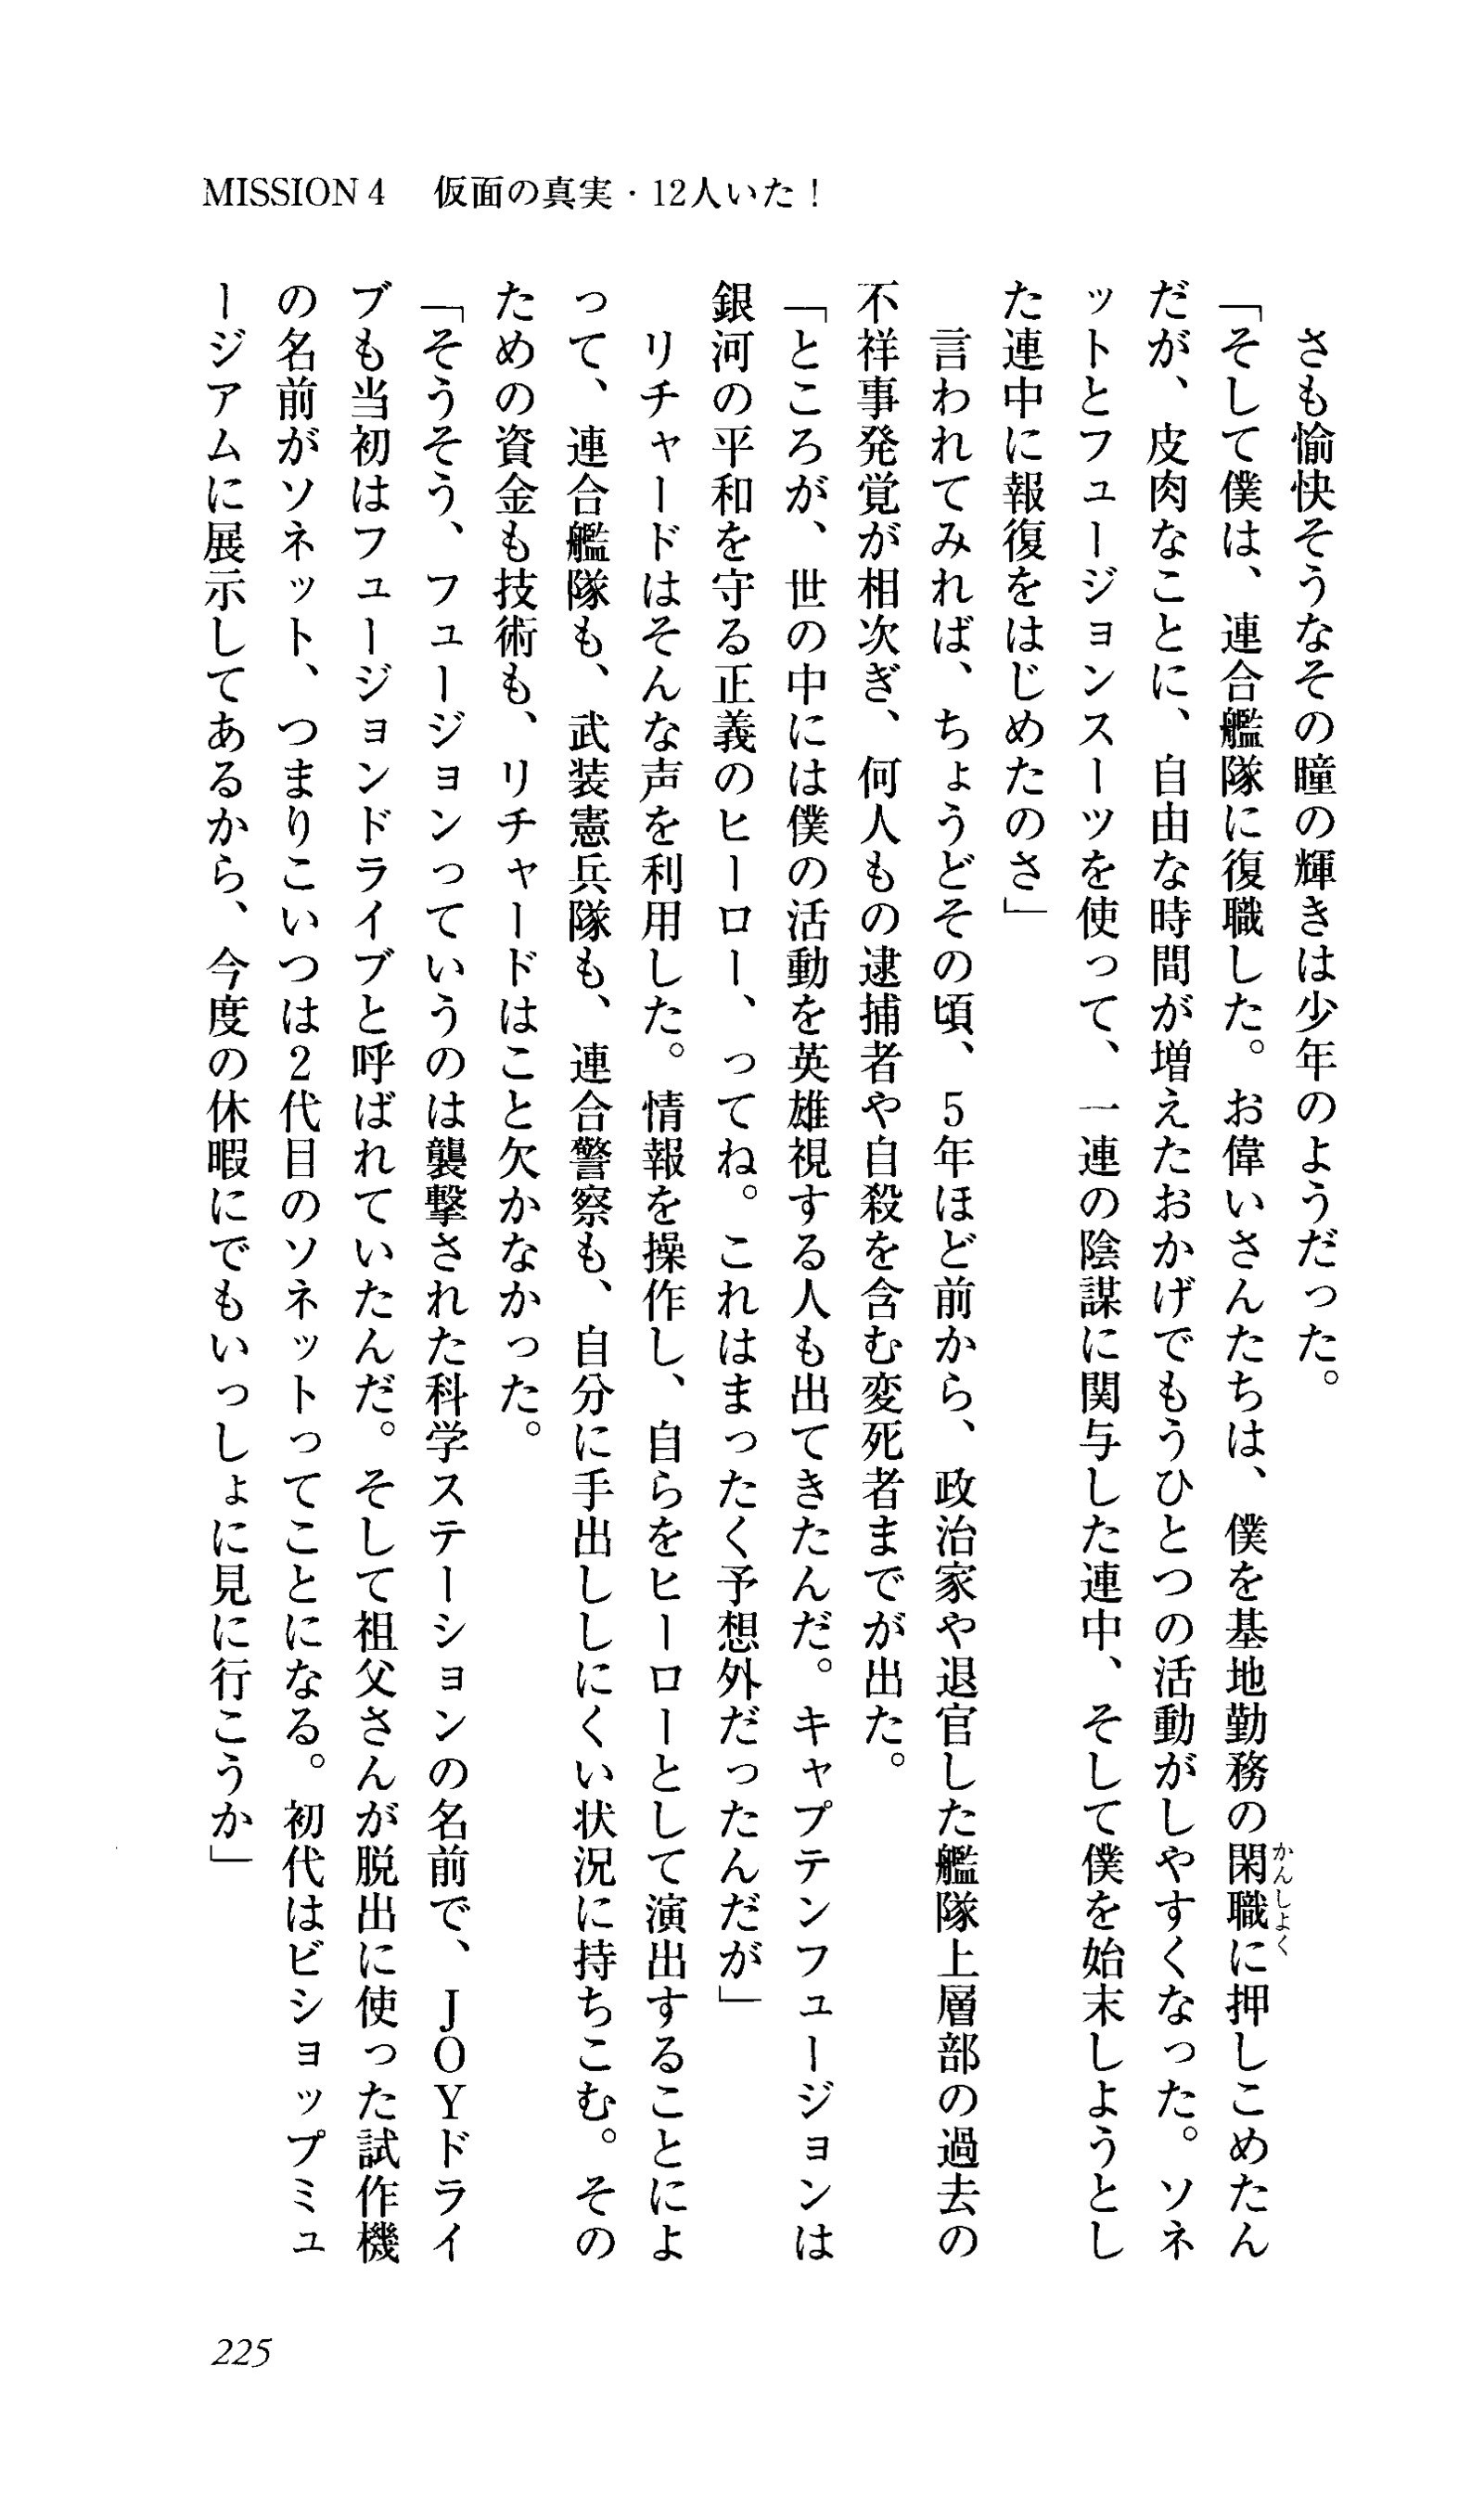 MISSION 4　仮面の真実・12人いた！
　さも愉快そうなその瞳の輝きは少年のようだった。
「そして僕は、連合艦隊に復職した。お偉いさんたちは、僕を基地勤務の閑職に押しこめたん
だが、皮肉なことに、自由な時間が増えたおかげでもうひとつの活動がしやすくなった。ソネ
ットとフュージョンスーツを使って、一連の陰謀に関与した連中、そして僕を始末しようとし
た連中に報復をはじめたのさ」
　言われてみれば、ちょうどその頃、5年ほど前から、政治家や退官した艦隊上層部の過去の
不祥事発覚が相次ぎ、何人もの逮捕者や自殺を含む変死者までが出た。
「ところが、世の中には僕の活動を英雄視する人も出てきたんだ。キャプテンフュージョンは
銀河の平和を守る正義のヒーロー、ってね。これはまったく予想外だったんだが」
　リチャードはそんな声を利用した。情報を操作し、自らをヒーローとして演出することによ
って、連合艦隊も、武装憲兵隊も、連合警察も、自分に手出ししにくい状況に持ちこむ。その
ための資金も技術も、リチャードはこと欠かなかった。
「そうそう、フュージョンっていうのは襲撃された科学ステーションの名前で、JOYドライ
ブも当初はフュージョンドライブと呼ばれていたんだ。そして祖父さんが脱出に使った試作機
の名前がソネット、つまりこいつは2代目のソネットってことになる。初代はビショップミュ
ージアムに展示してあるから、今度の休暇にでもいっしょに見に行こうか」
かんしよく
225